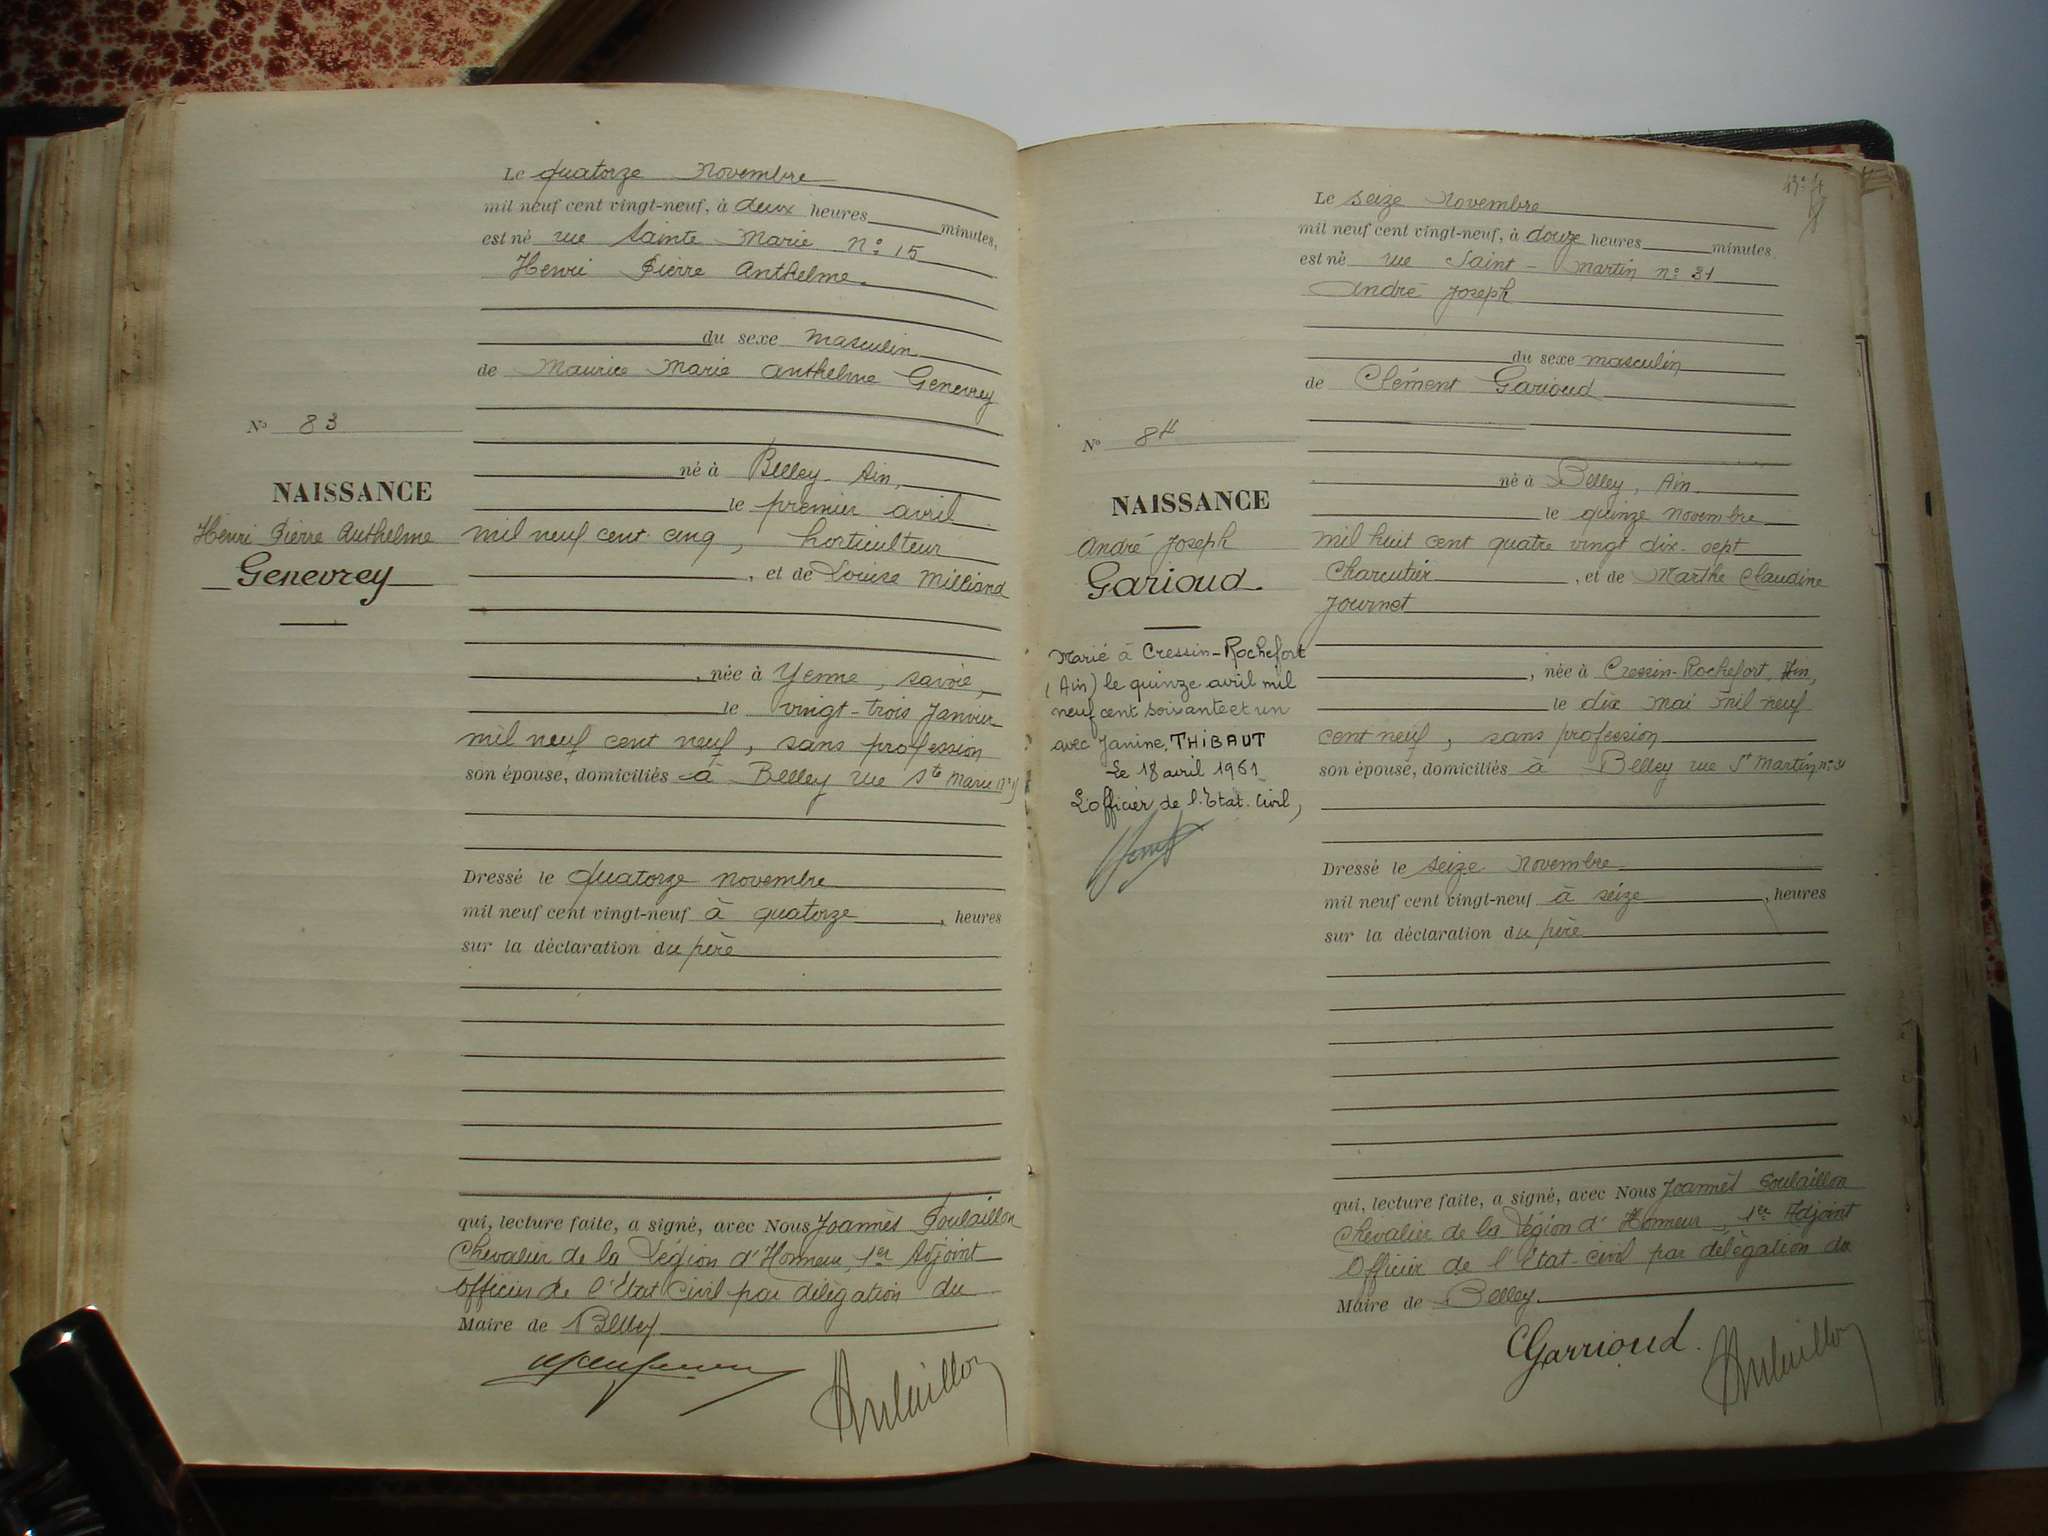 Le quatorze Novembre
mil neuf cent vingt-neuf, à deux heures minutes,
est né rue Sainte Marie N° 15
Henri Pierre Anthelme.
du sexe masculin
de Maurice Marie Anthelme Genevrey
N° 83
né à Belley Ain,
NAISSANCE
le premier avril
Henri Pierre Anthelme
mil neuf cent cinq, horticulteur
Genevrey
, et de Louise Milliand
, née à Yenne, Savoie,
le vingt-trois Janvier
mil neuf cent neuf, sans profession
son épouse, domiciliés à Belley rue Ste Marie N° 15
Dressé le quatorze novembre
mil neuf cent vingt-neuf à quatorze, heures
sur la déclaration du père
qui, lecture faite, a signé, avec Nous Joannès Poulaillon
Chevalier de la Légion d'Honneur, 1er Adjoint
Officier de l'Etat Civil par délégation du
Maire de Belley
Le seize Novembre
mil neuf cent vingt-neuf, à douze heures minutes.
est né rue Saint-Martin n° 31
André Joseph
du sexe masculin
de Clément Garioud
N° 84
né à Belley, Ain.
NAISSANCE
le quinze novembre
André Joseph
mil huit cent quatre vingt dix-sept
Garioud.
Charcutier, et de Marthe Claudine
Journet
Marié à Cressin-Rochefort
(Ain) le quinze avril mil
neuf cent soixante et un
avec Janine, THIBAUT
Le 18 avril 1961
L'officier de l'Etat-Civil,
, née à Cressin-Rochefort, Ain,
le dix mai mil neuf
cent neuf, sans profession
son épouse, domiciliés à Belley rue St Martin n° 31
Dressé le seize Novembre
mil neuf cent vingt-neuf à seize, heures
sur la déclaration du père
qui, lecture faite, a signé, avec Nous Joannès Poulaillon
Chevalier de la Légion d'Honneur, 1er Adjoint
Officier de l'Etat-civil par délégation du
Maire de Belley.
CGarrioud.